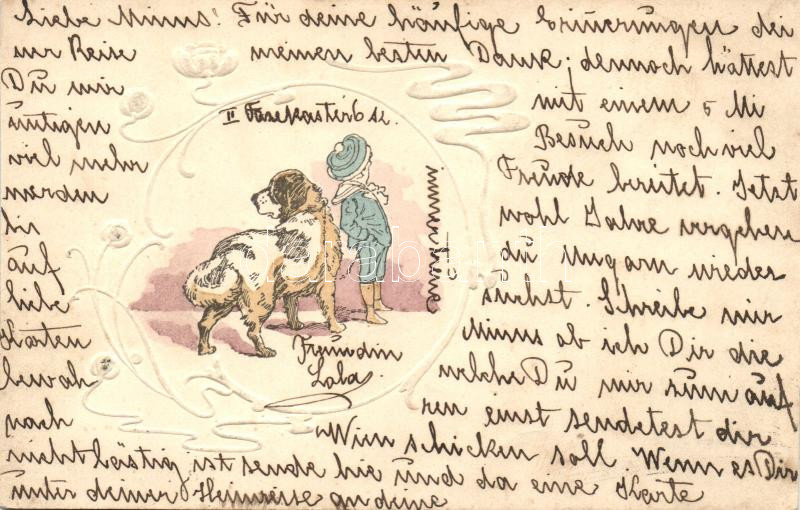 Liebe Minus! Für deine häufige Erinnerungen der
nur Reise meinen besten Dank; dennoch hättest
Du mir mit einem Mi
Besuch noch viel
Freude bereitet. Jetzt
wohl Jahre vergehen
du Ungarn wieder
siehst. Schreibe mir
Minus ob ich Dir die
welche Du mir zum auf
ren einst sendetest dir
Wien schicken soll. Wenn es Dir
nicht lästig ist sende hie und da eine Karte
unter deiner an deine
viel mehr
werden
bis
auf
liebe
Karten
bewah
nach
II 6 sz.
immer treue
Freundin
Lola